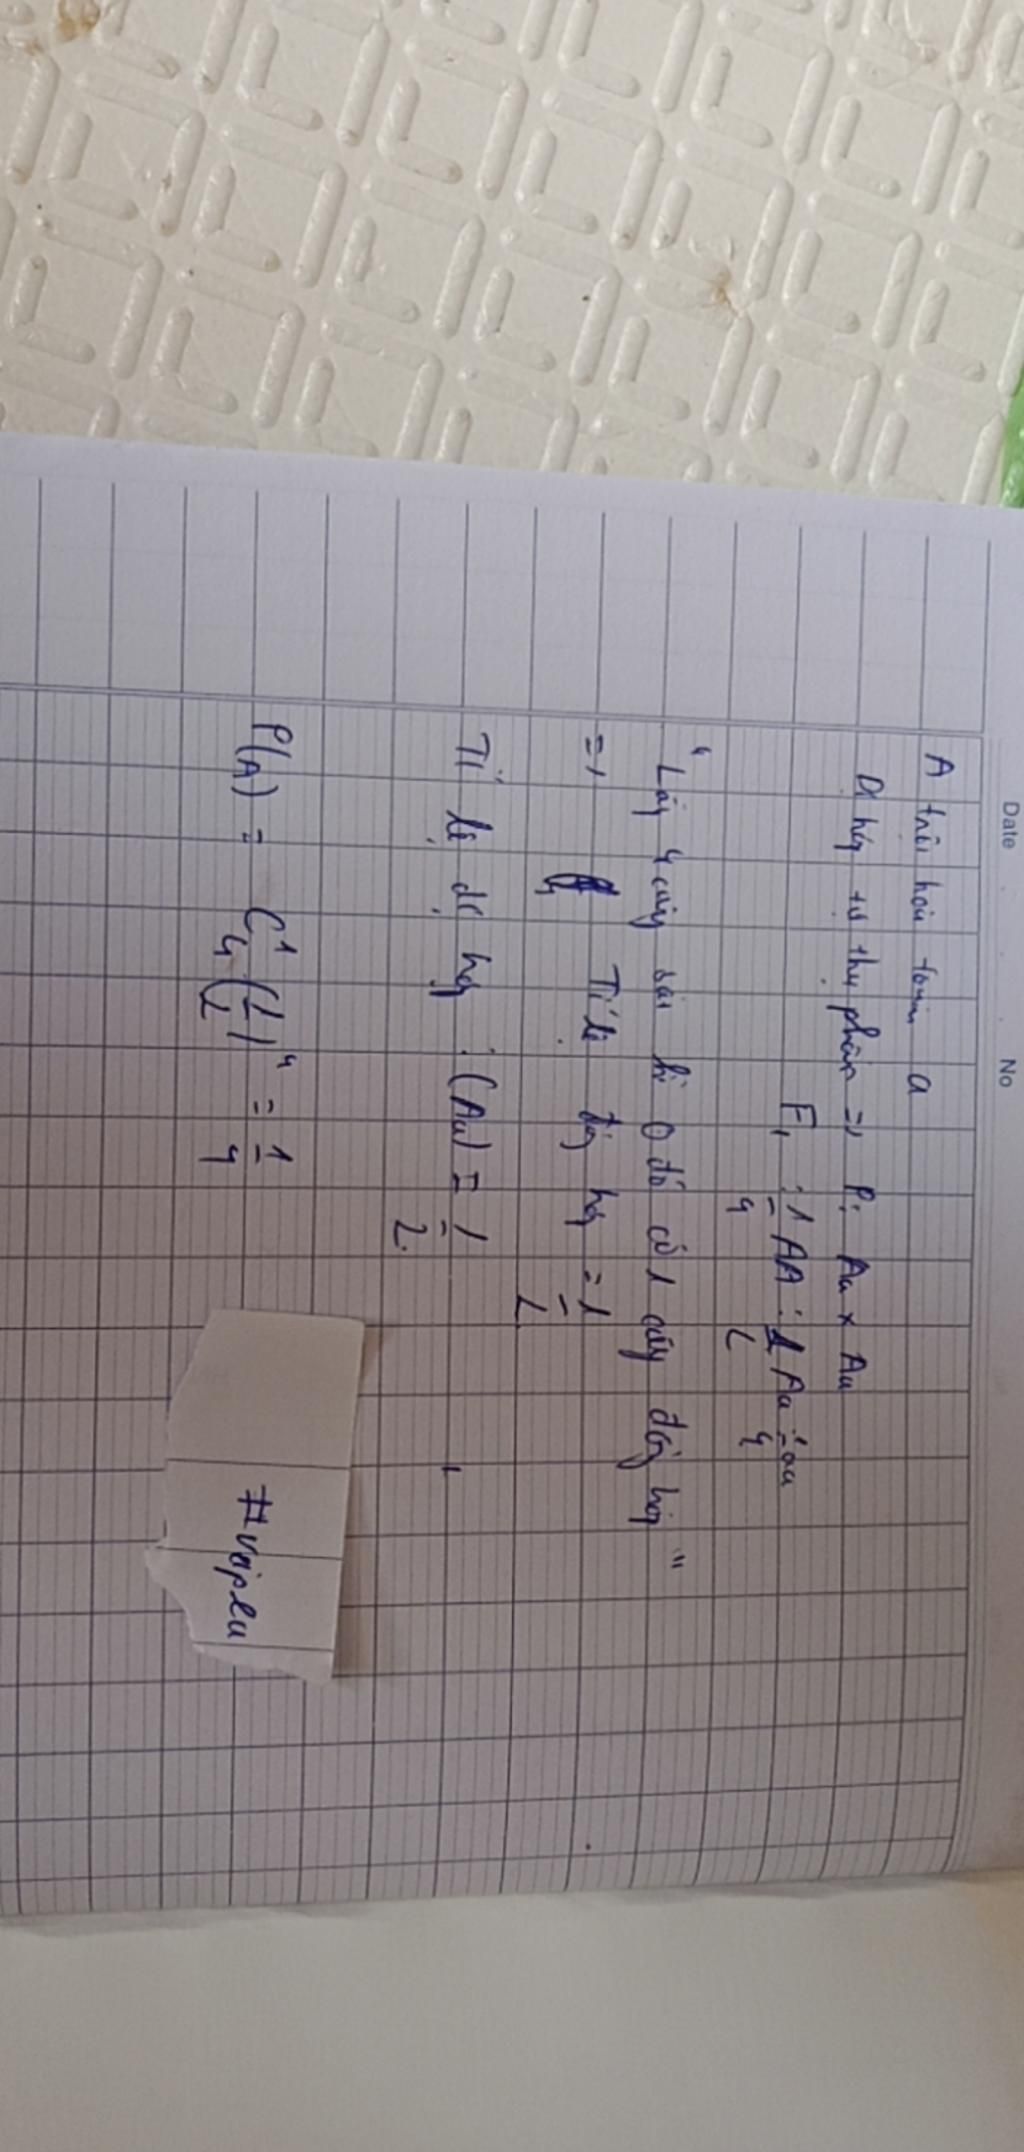 Date No
A trội hoàn toàn a
Dị hợp tự thụ phấn => P: Aa x Aa
F1 : 1/4 AA : 1/2 Aa : 1/4 aa
"Lấy 4 cây bài kì ở đó có 1 cây đồng hợp"
=> Tỉ lệ đồg hợp = 1/2
Tỉ lệ dị hợp : (Aa) = 1/2
P(A) = C¹₄ (1/2)⁴ = 1/4
#vvipea